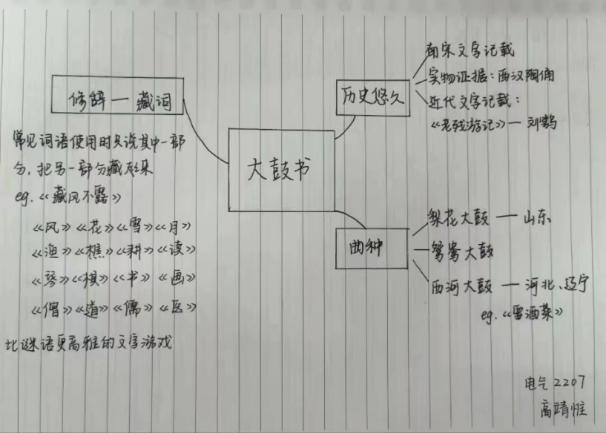 大鼓书
修辞—藏词
常见词语使用时只说其中一部
分，把另一部分藏起来
eg.《藏风不露》
《风》《花》《雪》《月》
《渔》《樵》《耕》《读》
《琴》《棋》《书》《画》
《僧》《道》《儒》《医》
比谜语更高雅的文字游戏
历史悠久
南宋文字记载
实物证据：西汉陶俑
近代文字记载：
《老残游记》—刘鹗
曲种
梨花大鼓 — 山东
鸳鸯大鼓
西河大鼓 — 河北、辽宁
eg.《雪酒菜》
电气2207
高靖惟